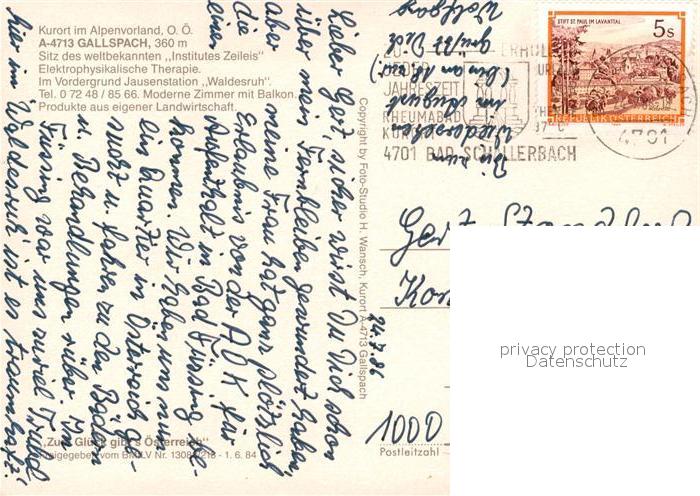 Kurort im Alpenvorland, O. Ö.
A-4713 GALLSPACH, 360 m
Sitz des weltbekannten „Institutes Zeileis"
Elektrophysikalische Therapie.
Im Vordergrund Jausenstation „Waldesruh".
Tel. 0 72 48 / 85 66. Moderne Zimmer mit Balkon.
Produkte aus eigener Landwirtschaft.
Lieber Gert, sicher wirst Du Dich schon
über mein Fernbleiben gewundert haben,
aber meine Frau hat ganz plötzlich
die Erlaubnis von der AOK für
einen Aufenthalt in Bad Füssing be-
kommen. Wir haben uns nun
ein Quartier in Österreich ge-
sucht u. fahren zu den Bädern
u. Behandlungen rüber. In
Füssing war uns zuviel Trubel
hier im Waldesruh ist es traumhaft.
Bis zum
Wiedersehen
im August
(bin am
grüßt Dich
Wolfgang
24.7.86
"Zum Glück gibt's Österreich"
Freigegeben vom BMfLV Nr. 1308 - 1. 6. 84
Copyright by Foto-Studio H. Wansch, Kurort A-4713 Gallspach
STIFT ST. PAUL IM LAVANTTAL
5 S
REPUBLIK ÖSTERREICH
ZU
JEDER
JAHRESZEIT
RHEUMABAD
4701 BAD SCHALLERBACH
4701
Gert
1000
Postleitzahl
privacy protection
Datenschutz